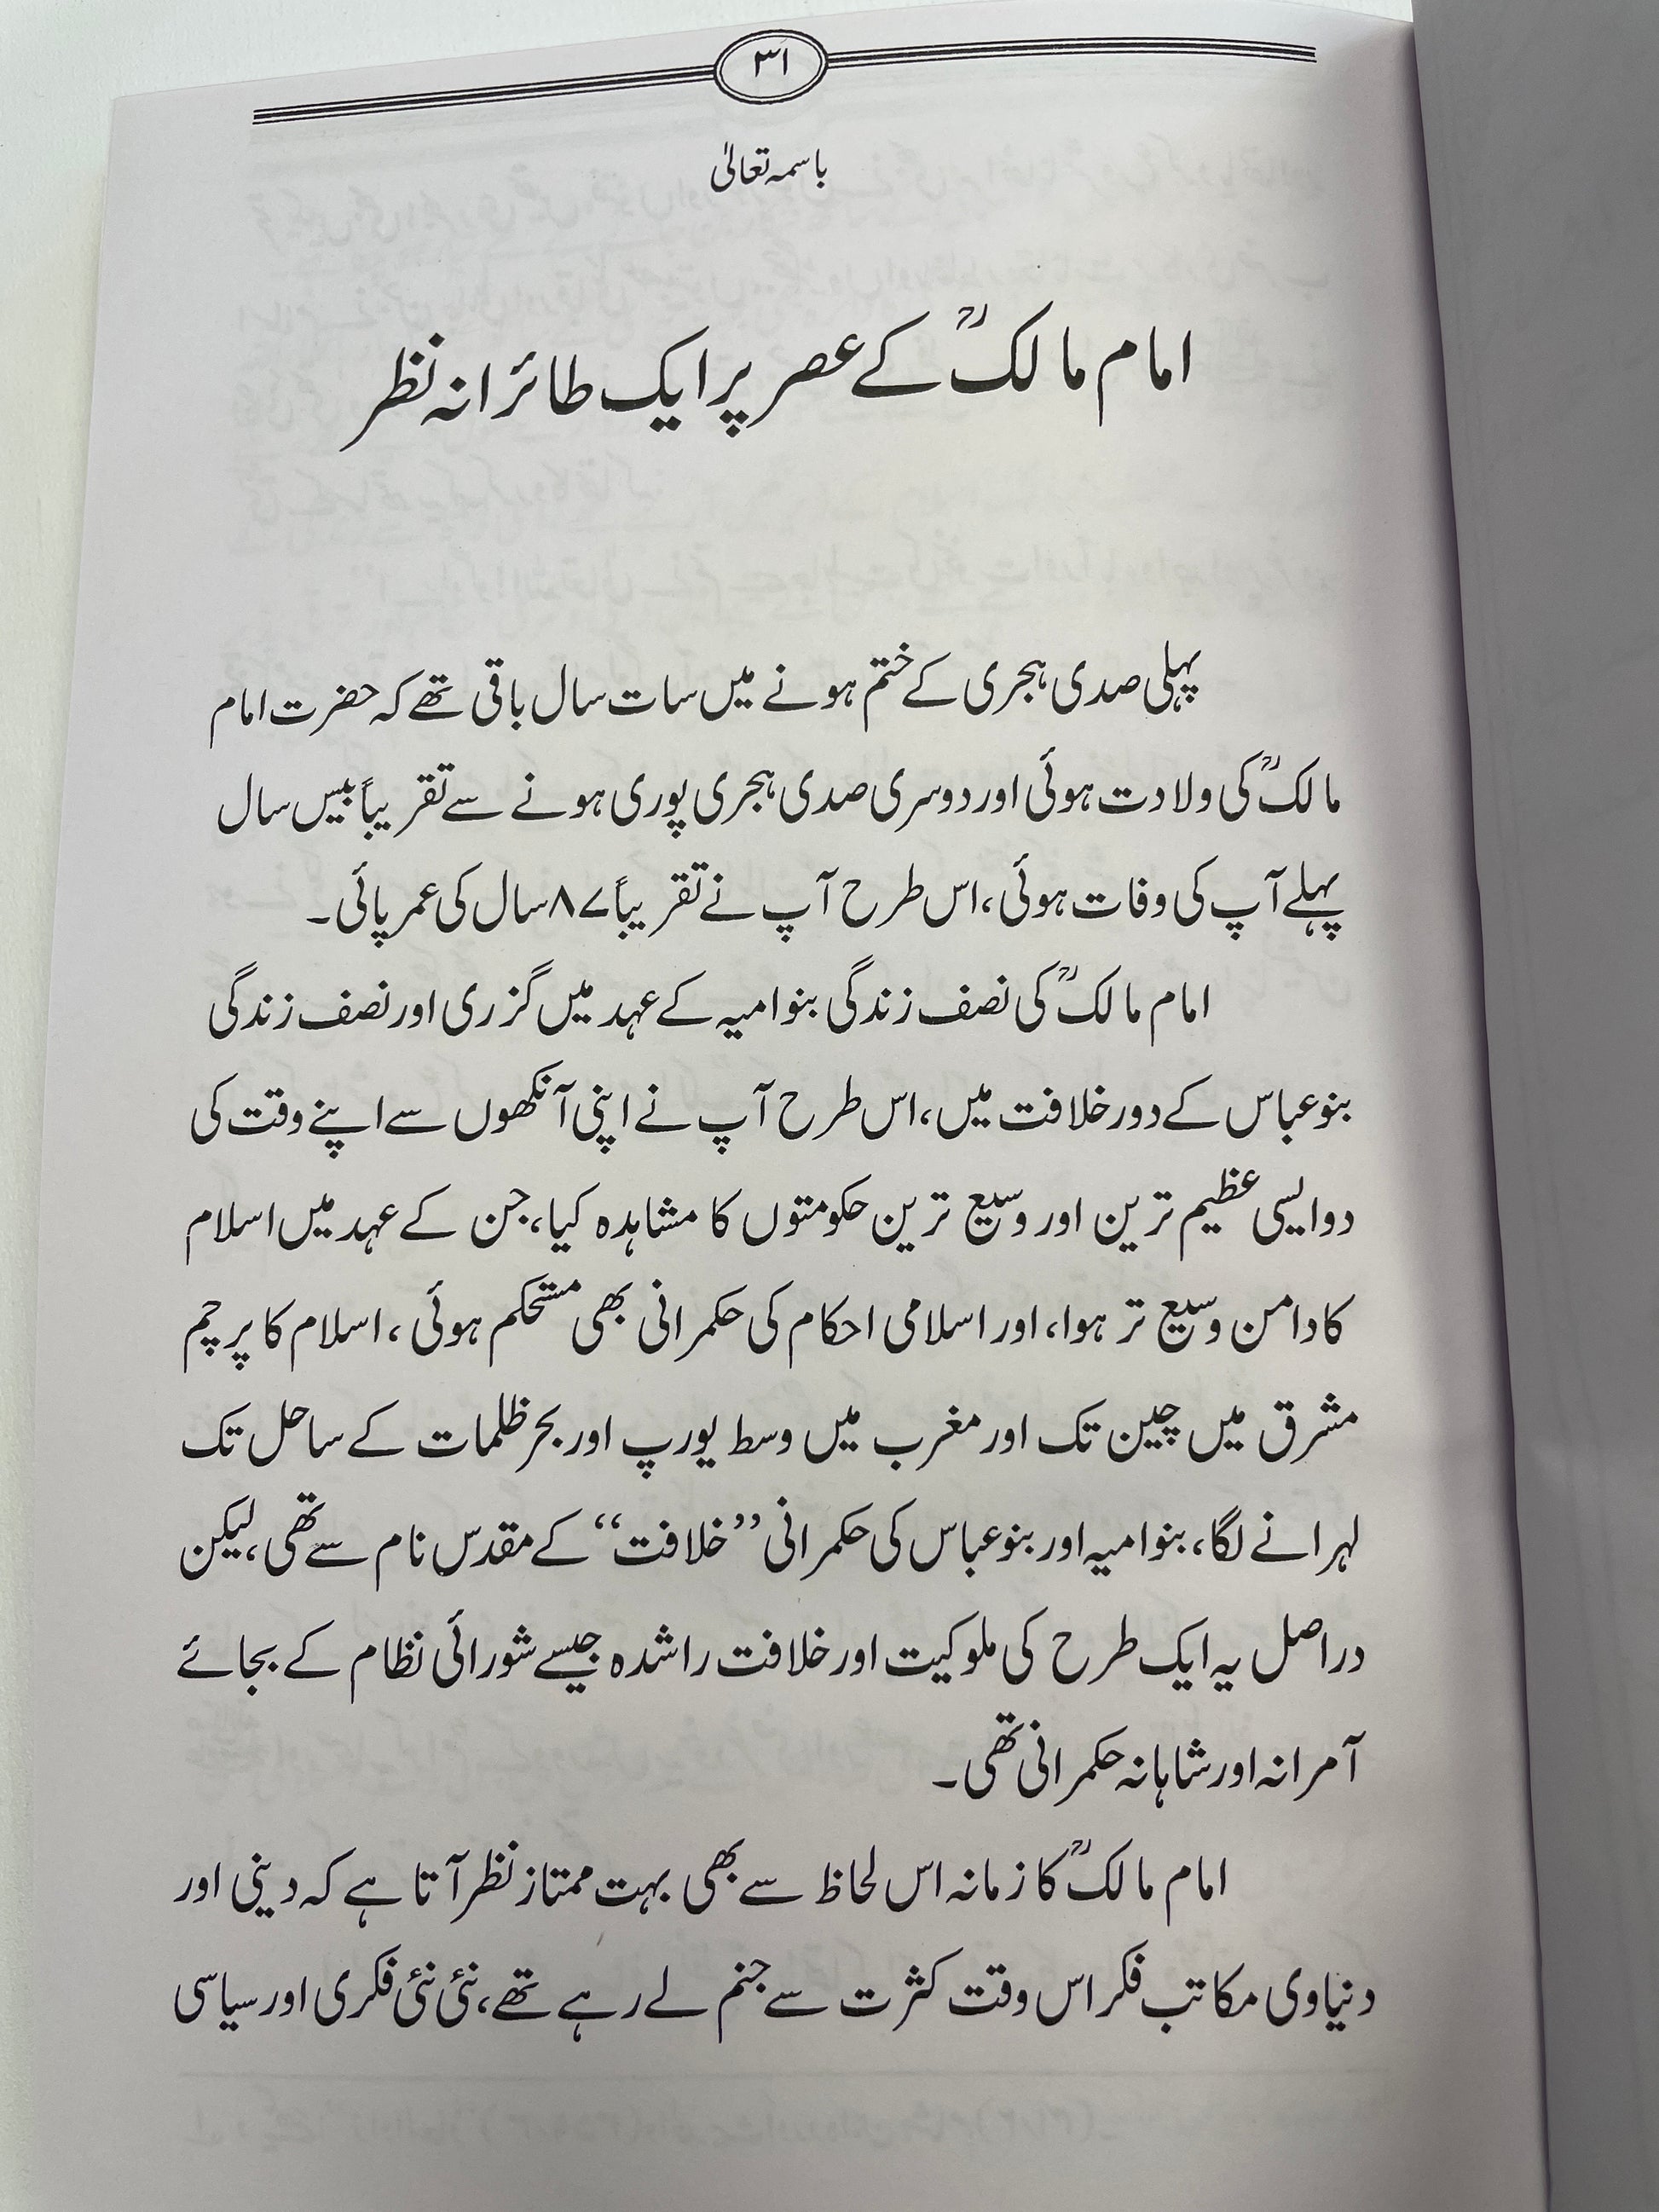 ۳۱
باسمہ تعالیٰ
امام مالکؒ کے عصر پر ایک طائرانہ نظر
پہلی صدی ہجری کے ختم ہونے میں سات سال باقی تھے کہ حضرت امام
مالکؒ کی ولادت ہوئی اور دوسری صدی ہجری پوری ہونے سے تقریباً بیس سال
پہلے آپ کی وفات ہوئی، اس طرح آپ نے تقریباً ۸۷ سال کی عمر پائی۔
امام مالکؒ کی نصف زندگی بنوامیہ کے عہد میں گزری اور نصف زندگی
بنوعباس کے دور خلافت میں، اس طرح آپ نے اپنی آنکھوں سے اپنے وقت کی
دو ایسی عظیم ترین اور وسیع ترین حکومتوں کا مشاہدہ کیا، جن کے عہد میں اسلام
کا دامن وسیع تر ہوا، اور اسلامی احکام کی حکمرانی بھی مستحکم ہوئی، اسلام کا پرچم
مشرق میں چین تک اور مغرب میں وسط یورپ اور بحر ظلمات کے ساحل تک
لہرانے لگا، بنوامیہ اور بنوعباس کی حکمرانی ’’خلافت‘‘ کے مقدس نام سے تھی، لیکن
دراصل یہ ایک طرح کی ملوکیت اور خلافت راشدہ جیسے شورائی نظام کے بجائے
آمرانہ اور شاہانہ حکمرانی تھی۔
امام مالکؒ کا زمانہ اس لحاظ سے بھی بہت ممتاز نظر آتا ہے کہ دینی اور
دنیاوی مکاتب فکر اس وقت کثرت سے جنم لے رہے تھے، نئی نئی فکری اور سیاسی